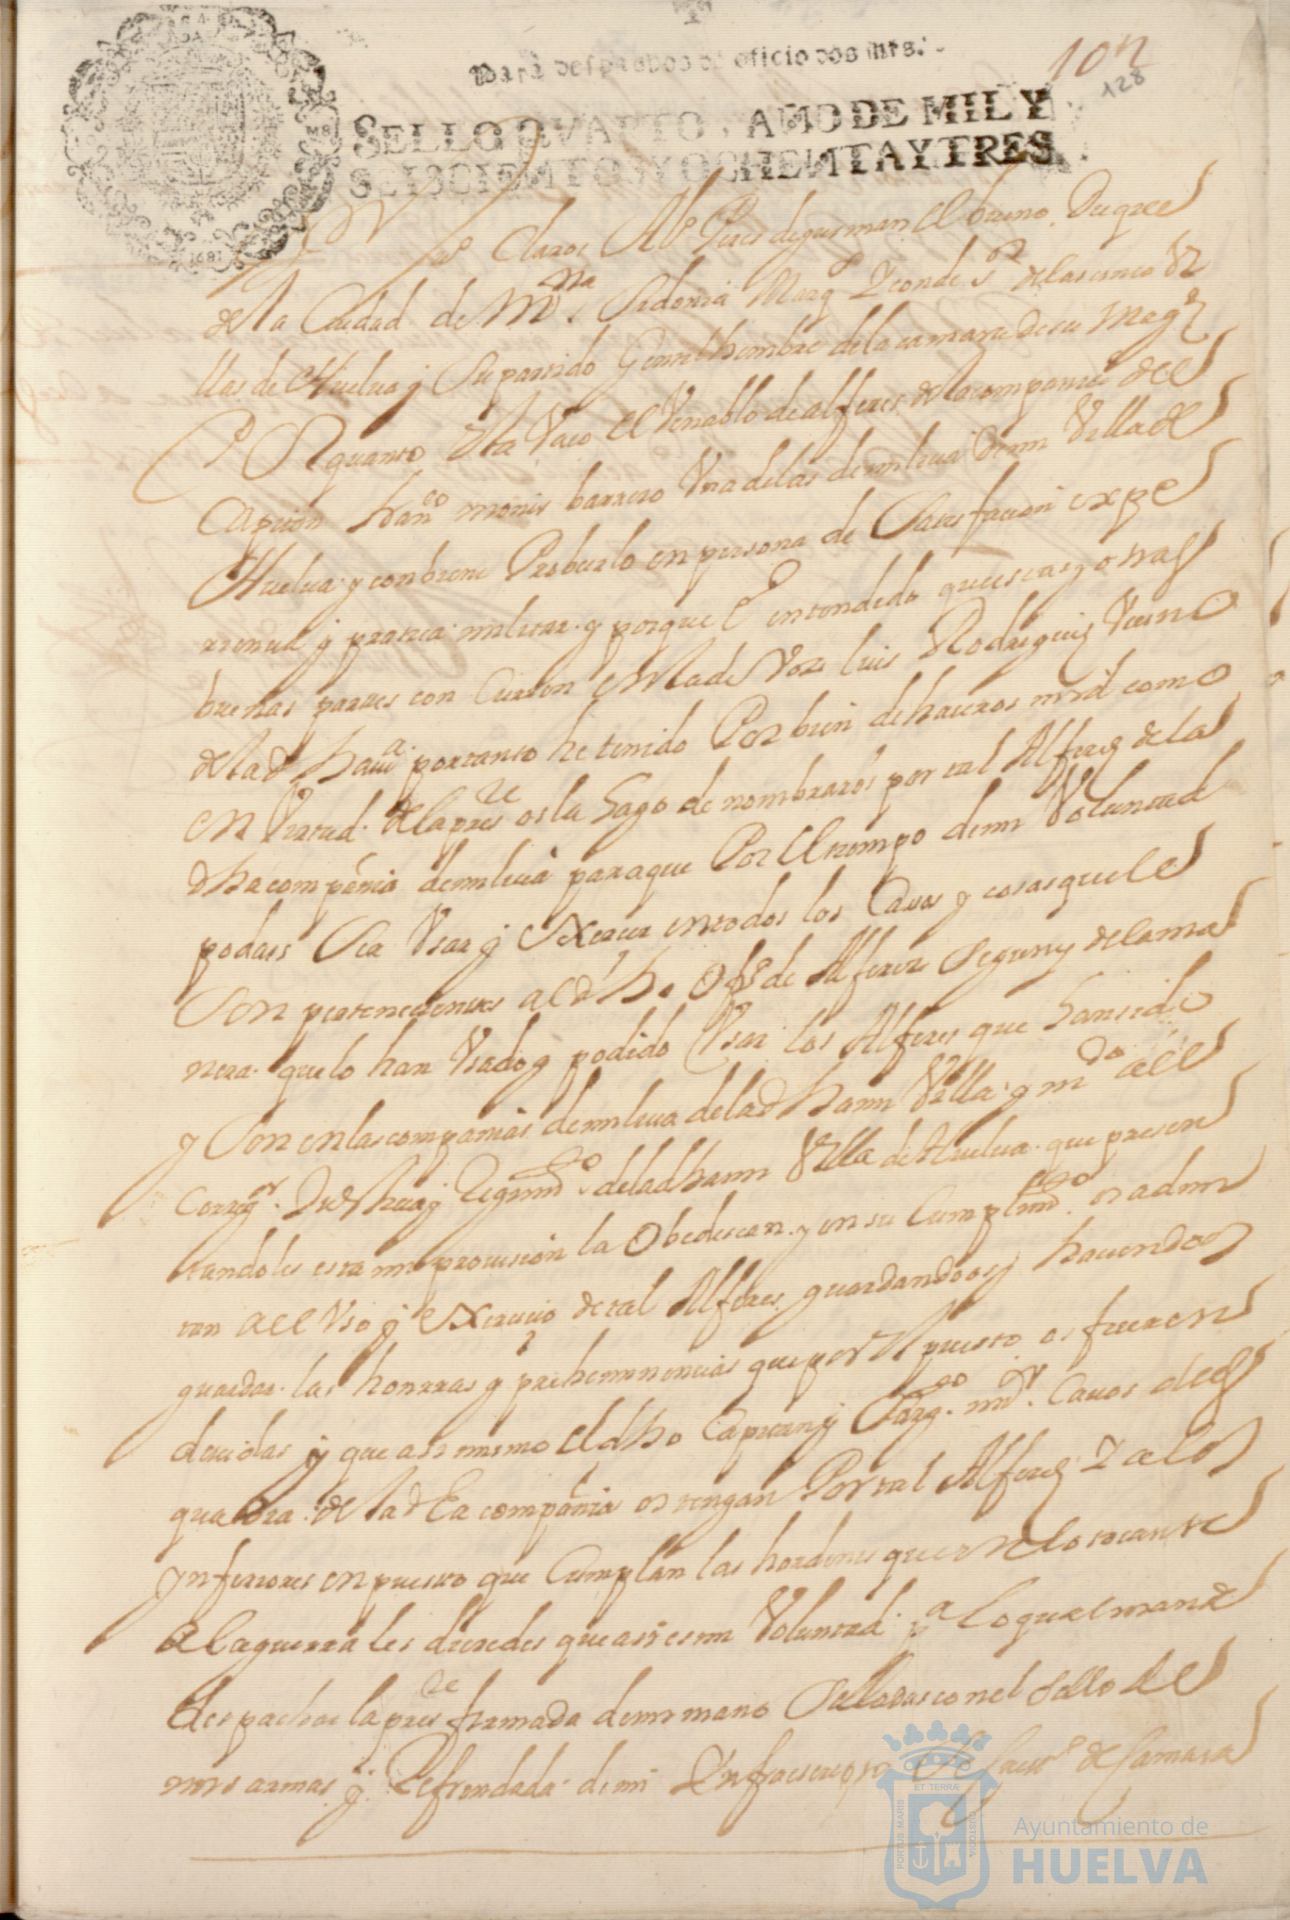 Para despachos de oficio dos mrs.
10n
128
SELLO QVARTO, AÑO DE MIL Y
SEISCIENTOS Y OCHENTA Y TRES
1681
Claros Alº Peres de gusman el bueno Duque
de la Ciudad de Mna Sidonia Marq Y conde Sor de las cinco Vi
llas de Huelua y Su partido Gentilhombre de la camara de su Magd
Por quanto esta Vaco el Venablo de alferes de la compania del
Capitan franco monis barrero Una de las de milicia de mi Villa de
Huelua y conbiene Proberlo en persona de Satisfacion expe
riencia y pratica militar y porque E entendido que estas y otras
buenas partes con curren en la de Vos luis Rodrigues Vecino
de la dha villa por tanto he tenido Por bien de haceros mrd como
en Virtud de la preste os la hago de nombraros por tal Alferez de la
dha compañia de milicia para que Por el tiempo de mi Voluntad
podais Sea Usar y Exercer en todos los Casos y cosas que le
Son pertenecientes al dho Ofº de Alferez Segun y de la ma
nera que lo han Usado y podido Usar los Alferes que han sido
y Son en las companias de milicia de la dha mi Villa y mdo al
Corregor Justicia y Regimto de la dha mi Villa de Huelua que presen
tandoles esta mi provision la Obedescan y en su Cumplimto os admi
tan al Uso y Exercicio de tal Alferes guardandoos y haciendoos
guardar las honrras y prehemminencias que por el puesto os fueren
deuidas y que asi mismo el dho Capitan y Sargto Cauos de es
quadra de la dha compañia os tengan Por tal Alferez Y a los
ynferiores en puesto que Cumplan las hordenes que en lo tocante
a la guerra les dieredes que asi es mi Voluntad pa lo qual mande
despachar la preste firmada de mi mano Sellada con el Sello de
mis armas y Refrendada de mi Infraescripto Secretº de Camara
PORTUS MARIS
ET TERRÆ
CUSTODIA
Ayuntamiento de
HUELVA